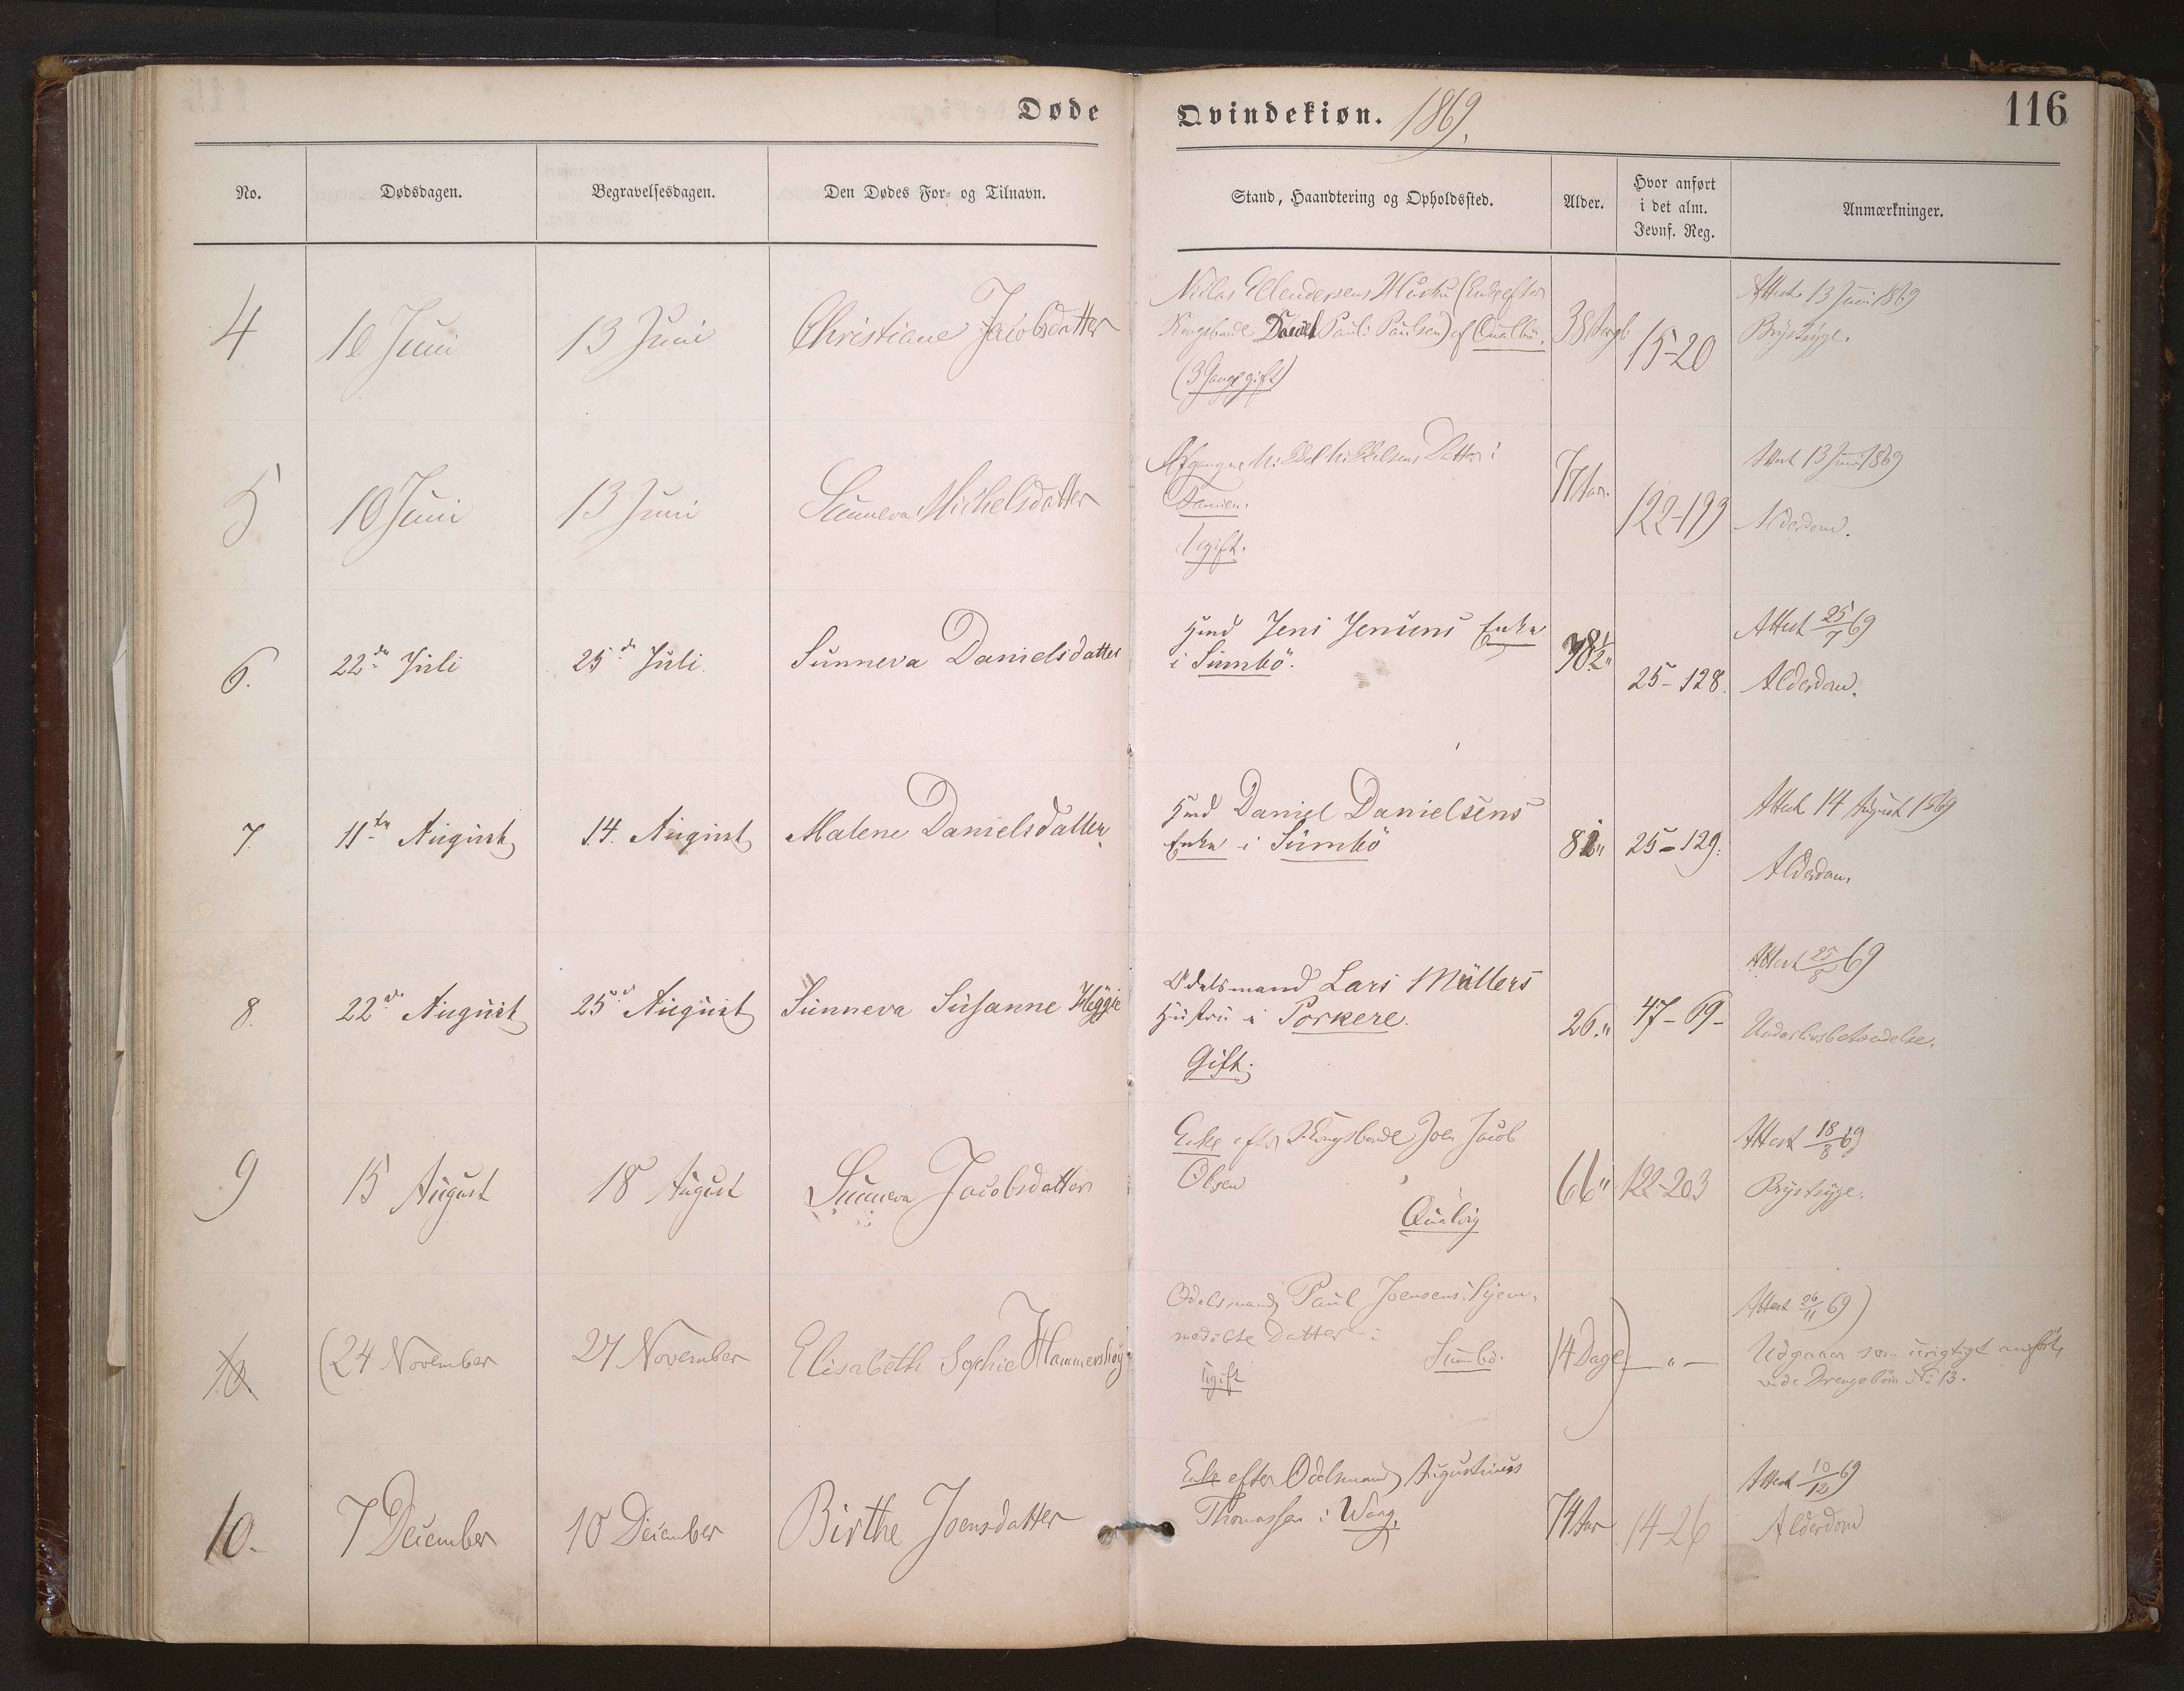 Døde
Qvindekiøn. 1869.
116
No. Dødsdagen. Begravelsesdagen. Den Dødes For- og Tilnavn. Stand, Haandtering og Opholdssted. Alder. Hvor anført i det alm. Jevnf. Reg. Anmærkninger.
4 10 Juni 13 Juni Christiane Jacobsdatter
Niclas Hustru (Enke efter
Kongsbonde Pauli Paulsen) af Qualbö.
(3 Gange gift)
38 15-20
Attest 13 Juni 1869
Brystsyge.
5 10 Juni 13 Juni Sunneva Michelsdatter
Afgangne Mikkel Mikkelsens Datter i
Famien.
Ugift.
77 Aar. 122-199
Attest 13 Juni 1869
Alderdom.
6. 22de Juli 25de Juli Sunneva Danielsdatter
Hmd Jens Jensens Enke
i Sumbö.
25-128.
Attest 25/7 69
Alderdom.
7. 11te August 14. August Malene Danielsdatter
Hmd Daniel Danielsens
Enke i Sumbö
81" 25-129.
Attest 14 August 1869
Alderdom.
8. 22de August 25de August Sunneva Susanne Heggie
Odelsmand Lars Müllers
Hustru i Porkere.
Gift.
26." 47-69-
Attest 25/8 69
Underlivsbetændelse.
9 15 August 18 August Sunneva Jacobsdatter
Enke efter Kongsbonde Joen Jacob
Olsen
Qualvig
66" 122-203
Attest 18/8 69
Brystsyge.
10 (24 November 27 November Elisabeth Sophie Hammershöy
Odelsmand Paul Joensens hjem-
medöbte Datter i
Sumbö.
Ugift
14 Dage) — " —
Attest 26/11 69)
Udgaaer som urigtigt anfört,
vide Drengebörn No 13.
10. 7 December 10 December Birthe Joensdatter
Enke efter Odelsmand Augustinus
Thomassen i Waag.
74 Aar 14-26
Attest 10/12 69
Alderdom